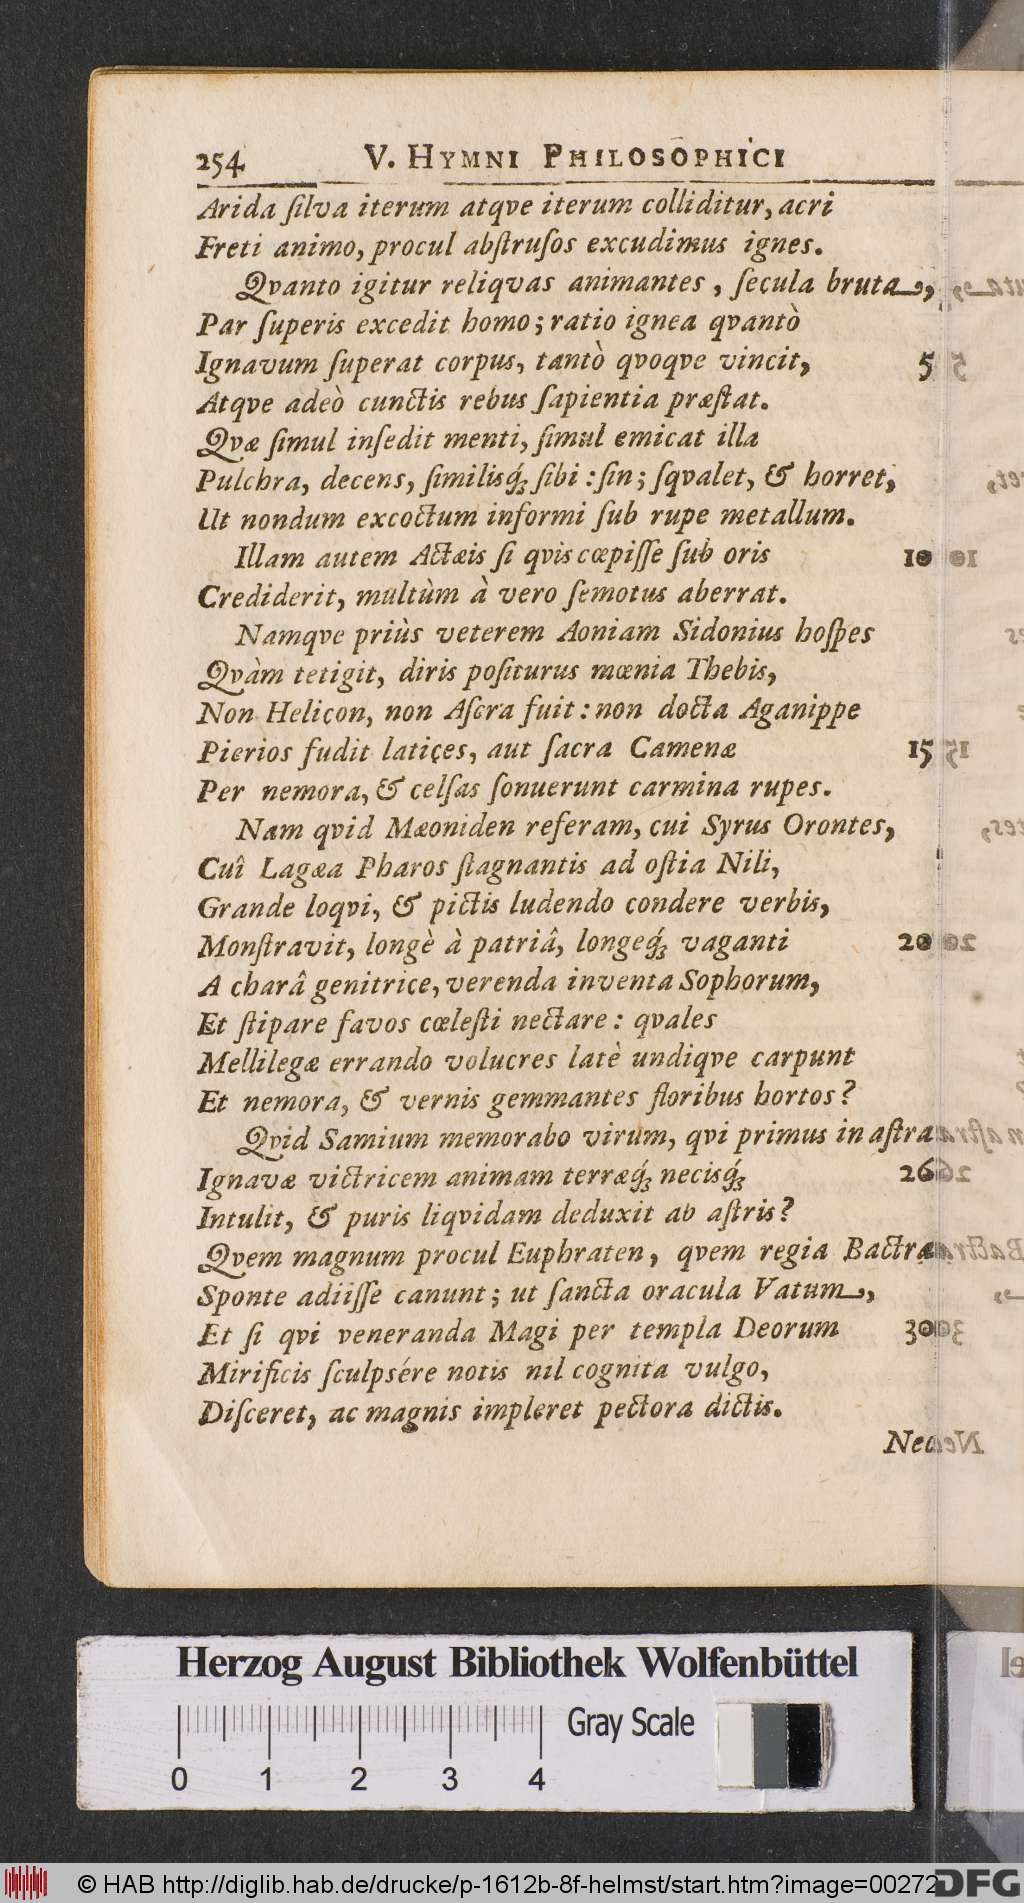 254 V. HYMNI PHILOSOPHICI
Arida ſilva iterum atqve iterum colliditur, acri
Freti animo, procul abſtruſos excudimus ignes.
Qvanto igitur reliqvas animantes, ſecula bruta,
Par ſuperis excedit homo; ratio ignea qvantò
Ignavum ſuperat corpus, tantò qvoqve vincit, 5
Atqve adeò cunctis rebus ſapientia præſtat.
Qvæ ſimul inſedit menti, ſimul emicat illa
Pulchra, decens, ſimilisq́; ſibi: ſin; ſqvalet, & horret,
Ut nondum excoctum informi ſub rupe metallum.
Illam autem Actæis ſi qvis cœpiſſe ſub oris 10
Crediderit, multùm à vero ſemotus aberrat.
Namqve priùs veterem Aoniam Sidonius hoſpes
Qvàm tetigit, diris poſiturus mœnia Thebis,
Non Helicon, non Aſcra fuit: non docta Aganippe
Pierios fudit latices, aut ſacra Camenæ 15
Per nemora, & celſas ſonuerunt carmina rupes.
Nam qvid Mæoniden referam, cui Syrus Orontes,
Cuî Lagæa Pharos ſtagnantis ad oſtia Nili,
Grande loqvi, & pictis ludendo condere verbis,
Monſtravit, longè à patriâ, longeq́; vaganti 20
A charâ genitrice, verenda inventa Sophorum,
Et ſtipare favos cœleſti nectare: qvales
Mellilegæ errando volucres latè undiqve carpunt
Et nemora, & vernis gemmantes floribus hortos?
Qvid Samium memorabo virum, qvi primus in aſtra
Ignavæ victricem animam terræq́; necisq́; 26
Intulit, & puris liqvidam deduxit ab aſtris?
Qvem magnum procul Euphraten, qvem regia Bactra
Sponte adiiſſe canunt; ut ſancta oracula Vatum,
Et ſi qvi veneranda Magi per templa Deorum 30
Mirificis ſculpsére notis nil cognita vulgo,
Diſceret, ac magnis impleret pectora dictis.
Herzog August Bibliothek Wolfenbüttel
Gray Scale
0 1 2 3 4
© HAB http://diglib.hab.de/drucke/p-1612b-8f-helmst/start.htm?image=00272
DFG